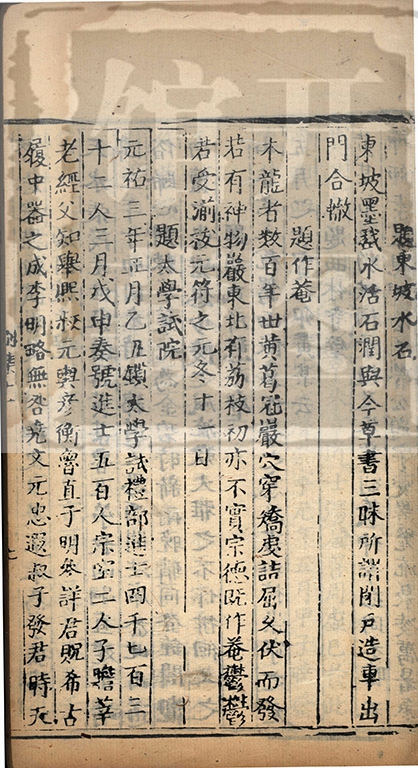 題東坡水石
東坡墨戲水活石潤與今草書三昧所謂閉戶造車出
門合轍
題作菴
木龍者數百年世黄葛冠巖穴穿繑虔詰屈久伏而發
若有神物巖東北有荔枝初亦不實宗德旣作菴鬱鬱
若受湔祓元符之元冬十一日
題太學試院
元祐三年正月乙丑鎖太學試禮部進士四千七百三
十二人三月戊申奏號進士五百人宗室二人子瞻莘
老經父知舉熙叔元輿彦衡魯直子明參詳君貺希古
履中器之成季明略無咎堯文元忠遐叔子發君時天